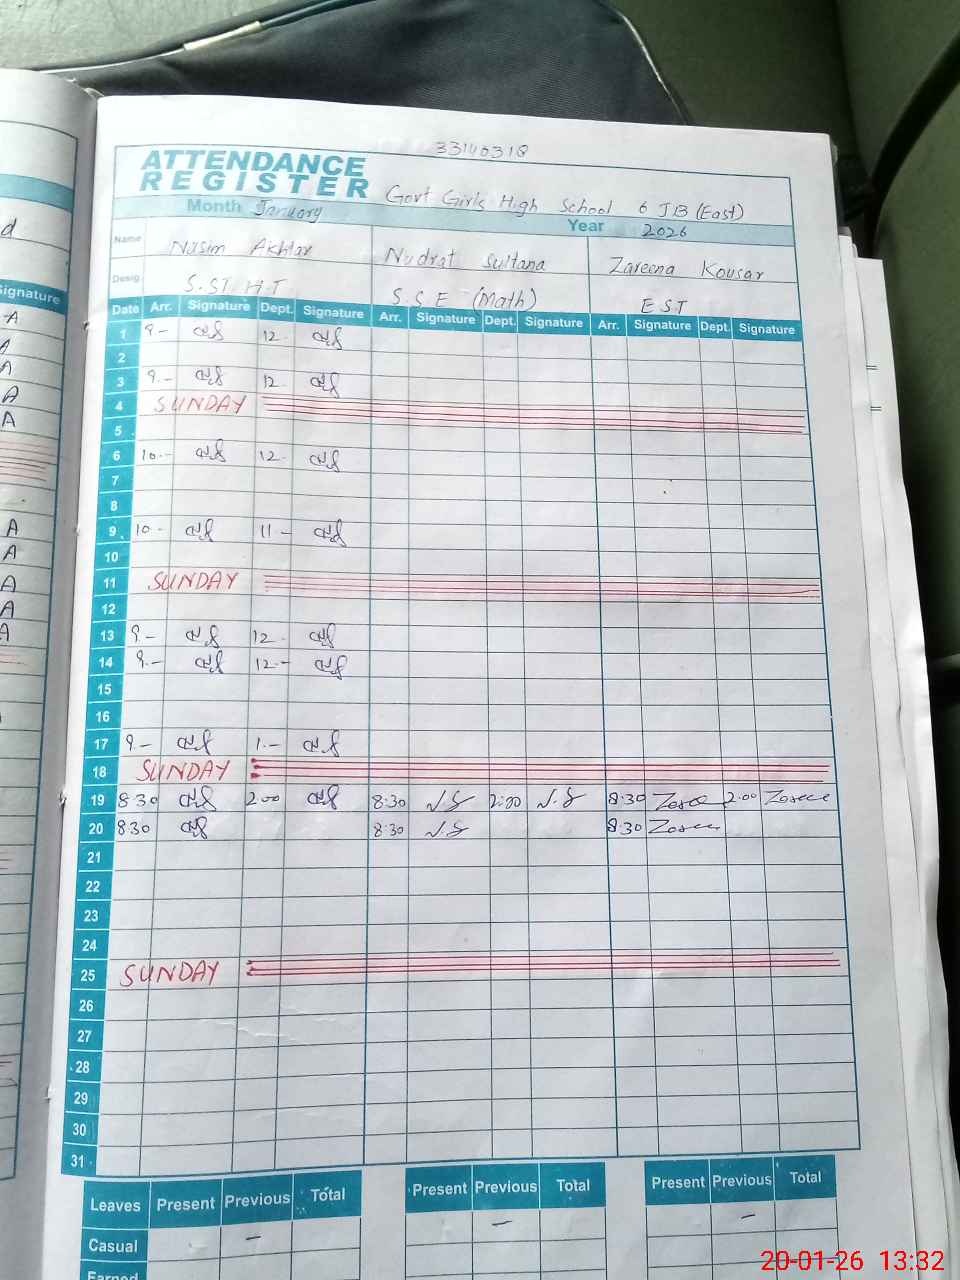 33140318
ATTENDANCE
REGISTER Govt Girls High School 6 JB (East)
Month January Year 2026
Name Nasim Akhtar Nudrat Sultana Zareena Kousar
Desig. S.ST H.T S.S.E (Math) E.S.T
Signature
Date Arr. Signature Dept. Signature Arr. Signature Dept. Signature Arr. Signature Dept. Signature
1 9- 12-
2
3 9.- 12-
4 SUNDAY
5
6 10.- 12-
7
8
9 10- 11-
10
11 SUNDAY
12
13 9- 12-
14 9.- 12.-
15
16
17 9- 1.-
18 SUNDAY
19 8:30 2:00 8:30 N.S 2:00 N.S 8:30 2:00
20 8:30 8:30 N.S 8:30
21
22
23
24
25 SUNDAY
26
27
28
29
30
31
Leaves Present Previous Total Present Previous Total Present Previous Total
Casual - - -
Earned
20-01-26 13:32